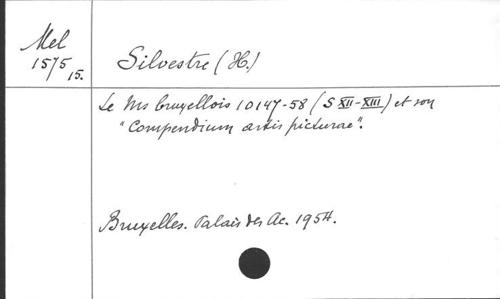 Mel
1575
15.
Silvestre (H.)
Le Ms bruxellois 10147-58 (S XII-XIII) et son
"Compendium artis picturae".
Bruxelles. Palais des Ac. 1954.